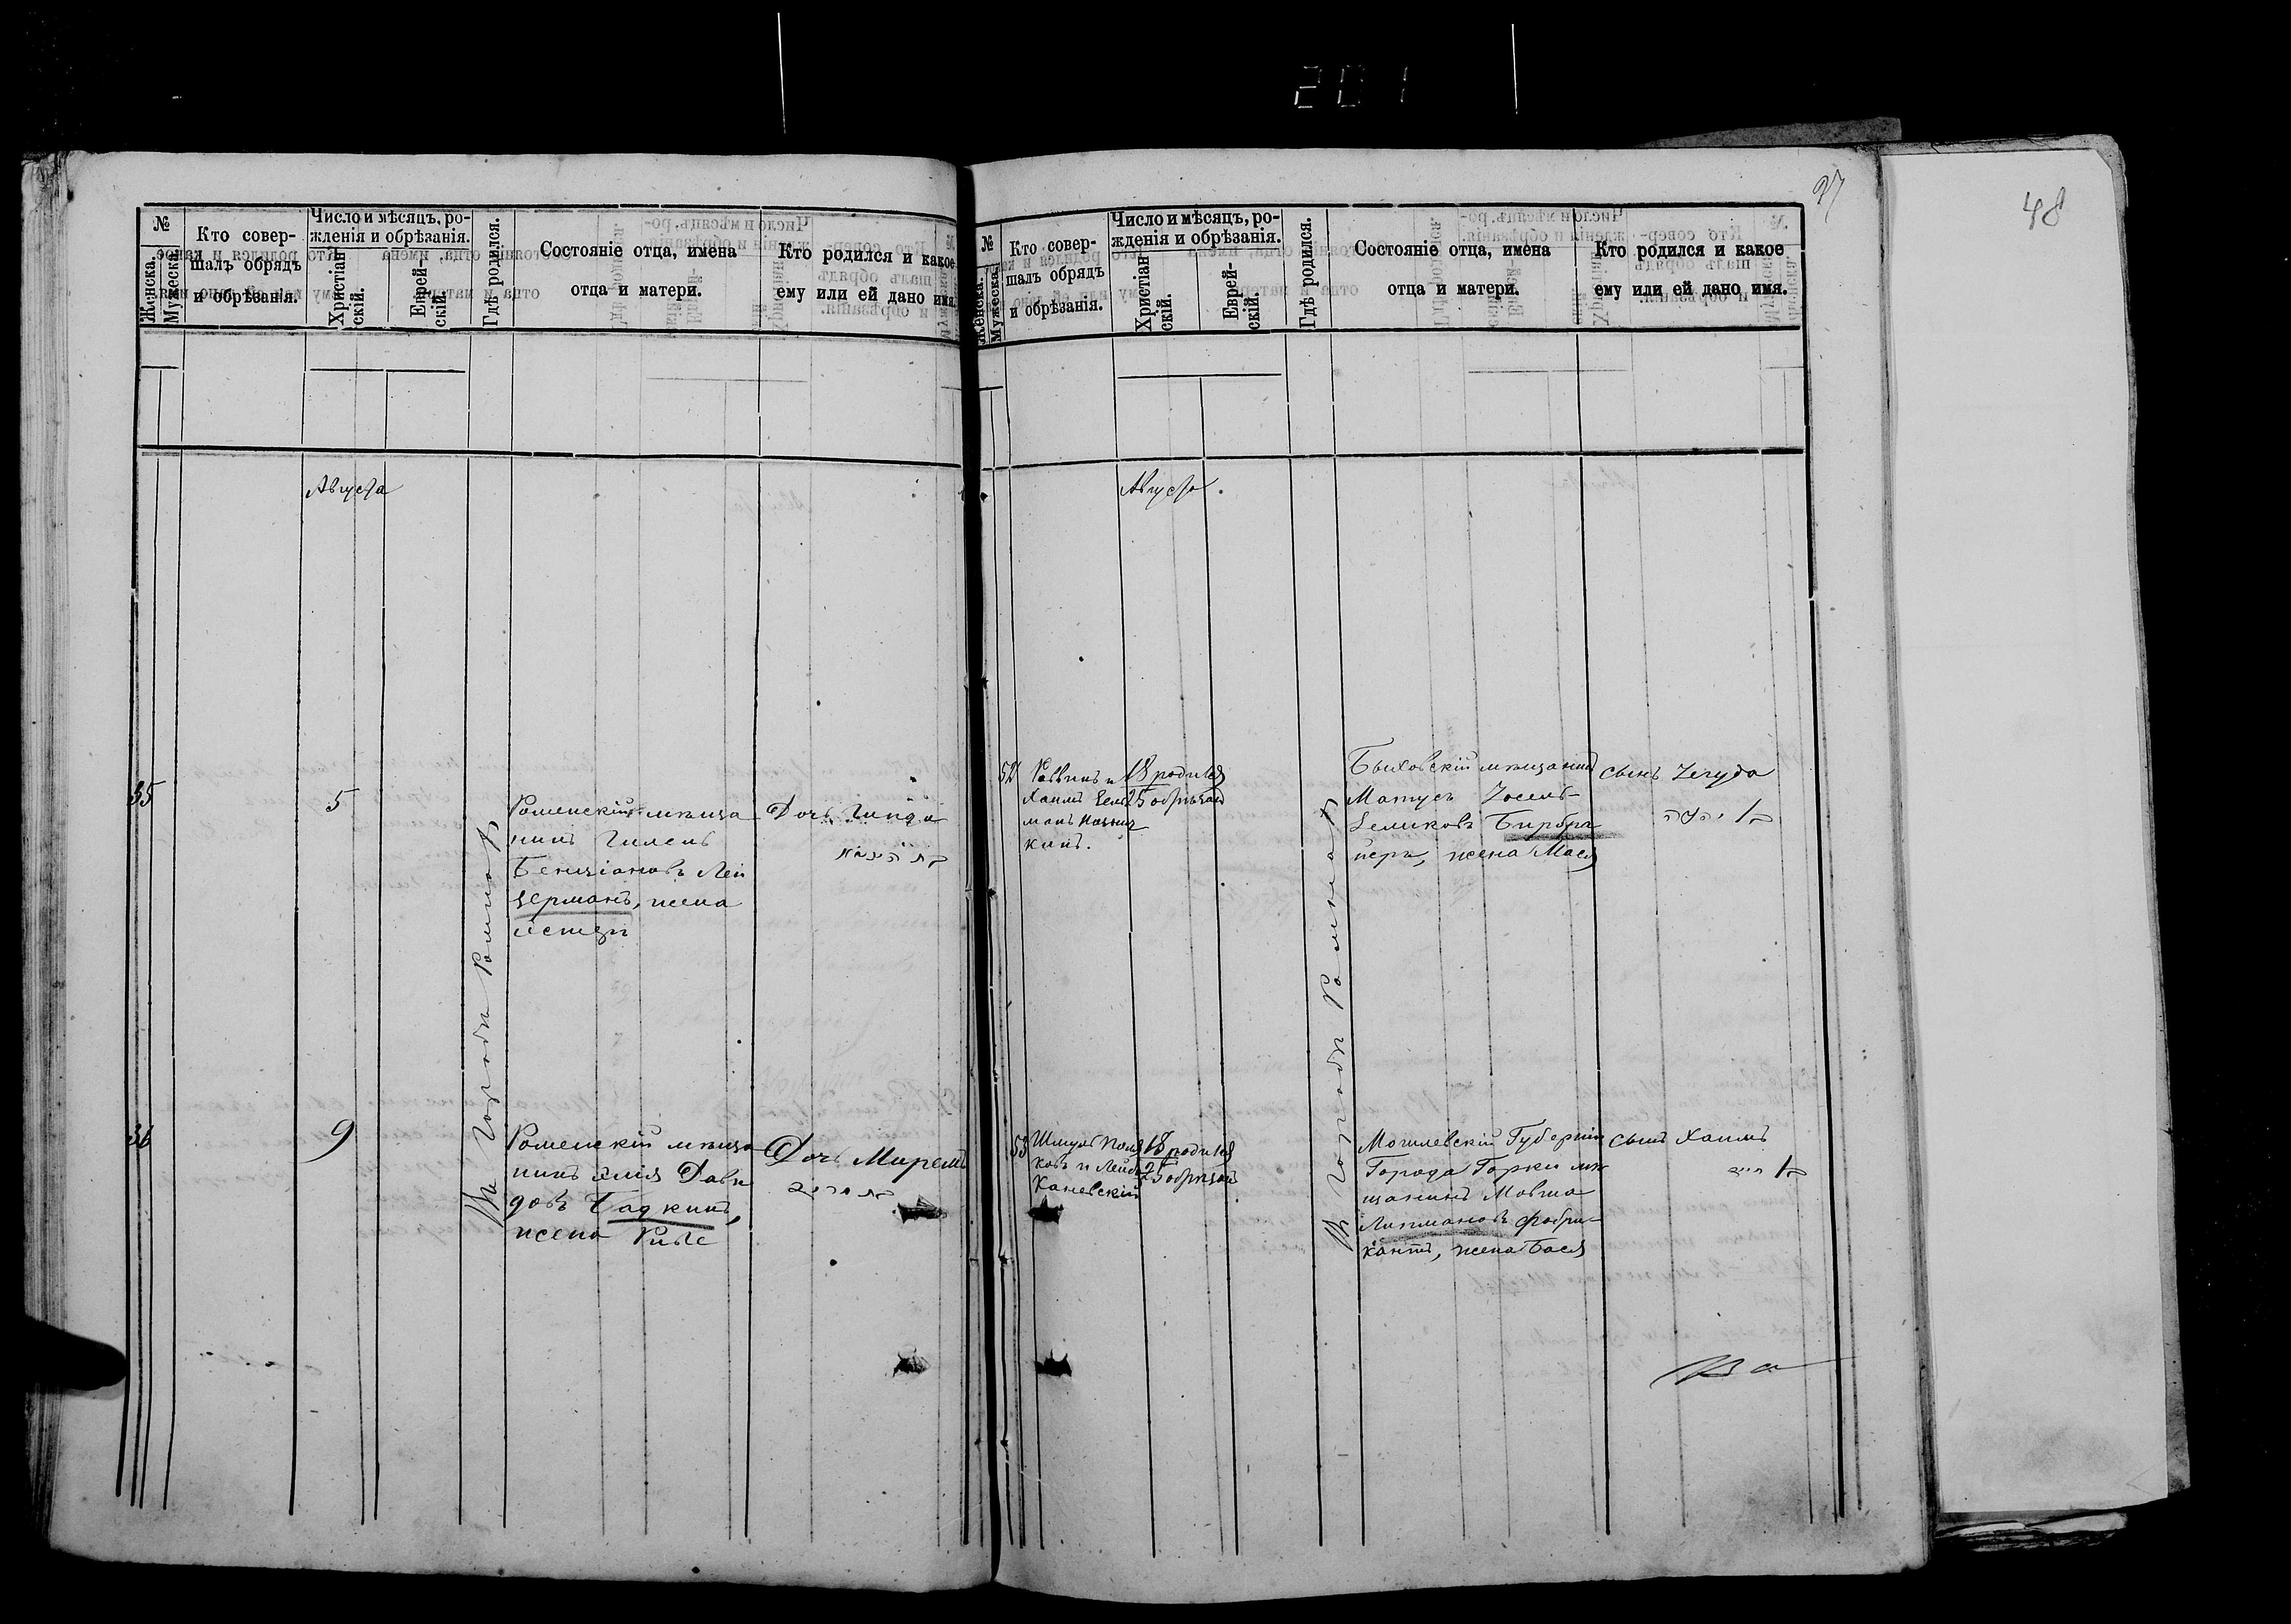 201
48
27
№
Женска.
Мужеска.
Кто совер-
шалъ обрядъ
и обрѣзанія.
Число и мѣсяцъ, ро-
жденія и обрѣзанія.
Христіан-
скій.
Еврей-
скій.
Гдѣ родился.
Состояніе отца, имена
отца и матери.
Кто родился и какое
ему или ей дано имя.
Августа
35
5
Роменскій мѣща
нинъ Гилель
Бенціоновъ Лей
зерманъ, жена
Естеръ
Дочь Гинда
36
9
Въ Городѣ Ромнахъ
Роменскій мѣща
нинъ Элія Дави
довъ Гадкинъ,
жена Ривке
Дочь Мирель
№
Женска.
Мужеска.
Кто совер-
шалъ обрядъ
и обрѣзанія.
Число и мѣсяцъ, ро-
жденія и обрѣзанія.
Христіан-
скій.
Еврей-
скій.
Гдѣ родился.
Состояніе отца, имена
отца и матери.
Кто родился и какое
ему или ей дано имя.
Августа
52
Раввинъ и
Хаимъ Зель
манъ
кинъ.
18 родился
25 обрѣзанъ
Быховскій мѣщанинъ
Матусъ Іосель-
Зеликовъ
жена Мася
сынъ Іегуда
יהודה
53
Шмуль Поля
ковъ и Лейба
Каневскій
18 родился
25 обрѣзанъ
Въ Городѣ Ромнахъ
Могилевскій Губерніи
Города Горки мѣ
щанинъ Мовша
Липмановъ Фабри-
кантъ, жена Бася
сынъ Хаимъ
חיים